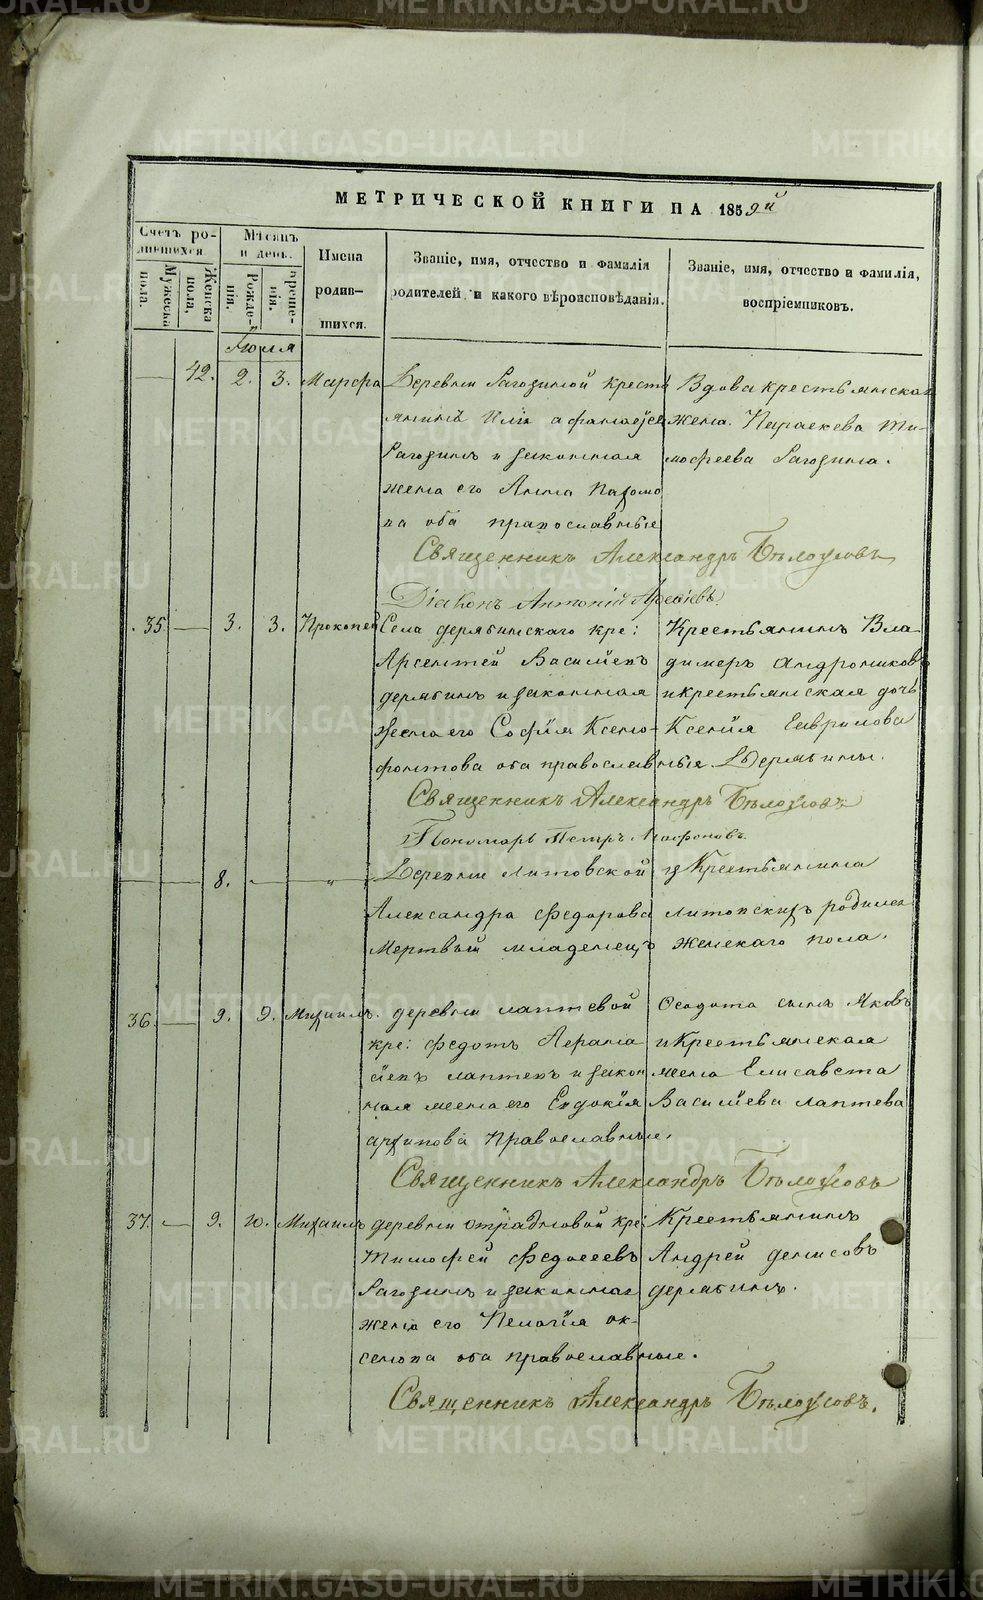 МЕТРИЧЕСКОЙ КНИГИ НА 1859й
Счетъ родившихся.
Мѣсяцъ и день.
Имена родившихся.
Званіе, имя, отчество и фамилія родителей, и какого вѣроисповѣданія.
Званіе, имя, отчество и фамилія, воспріемниковъ.
Мужеска пола.
Женска пола,
Рожденія.
Крещенія.
Іюля
42. 2. 3. Марфа Деревни Рагозиной кресть Вдова крестьянская
янинъ Илія Афанасьевъ жена Параскева Ти-
Рагозинъ и законная мофеева Рагозина.
жена его Анна Пахомо
ва оба православные
Священникъ Александръ Бѣлоусовъ
Діаконъ Антоній
35 3. 3. Прокопей Села дерябинскаго кре: Крестьянинъ Вла-
Арсентей Васильевъ димеръ Андрониковъ
дерябинъ и законная и крестьянская дочь
жена его Софія Ксено- Ксенія Гаврилова
фонтова оба православные Дерябины.
Священникъ Александръ Бѣлоусовъ
Пономарь Петръ
8. " " Деревни Литовской у Крестьянина
Александра Федорова Литовскихъ родился
Мертвый младенецъ женскаго пола.
36 9. 9. Михаилъ. деревни лаптевой Федота сынъ Яковъ
кре: Федотъ и Крестьянская
лаптевъ и закон жена Елисавета
ная жена его Евдокія Васильева лаптева
архипова Православные.
Священникъ Александръ Бѣлоусовъ
37. 9. 10. Михаилъ деревни отрадновой кре: Крестьянинъ
Тимофей Федосеевъ Андрей денисовъ
Рагозинъ и законная дерябинъ.
жена его Пелагія ак-
сенова оба православные.
Священникъ Александръ Бѣлоусовъ.
METRIKI.GASO-URAL.RU